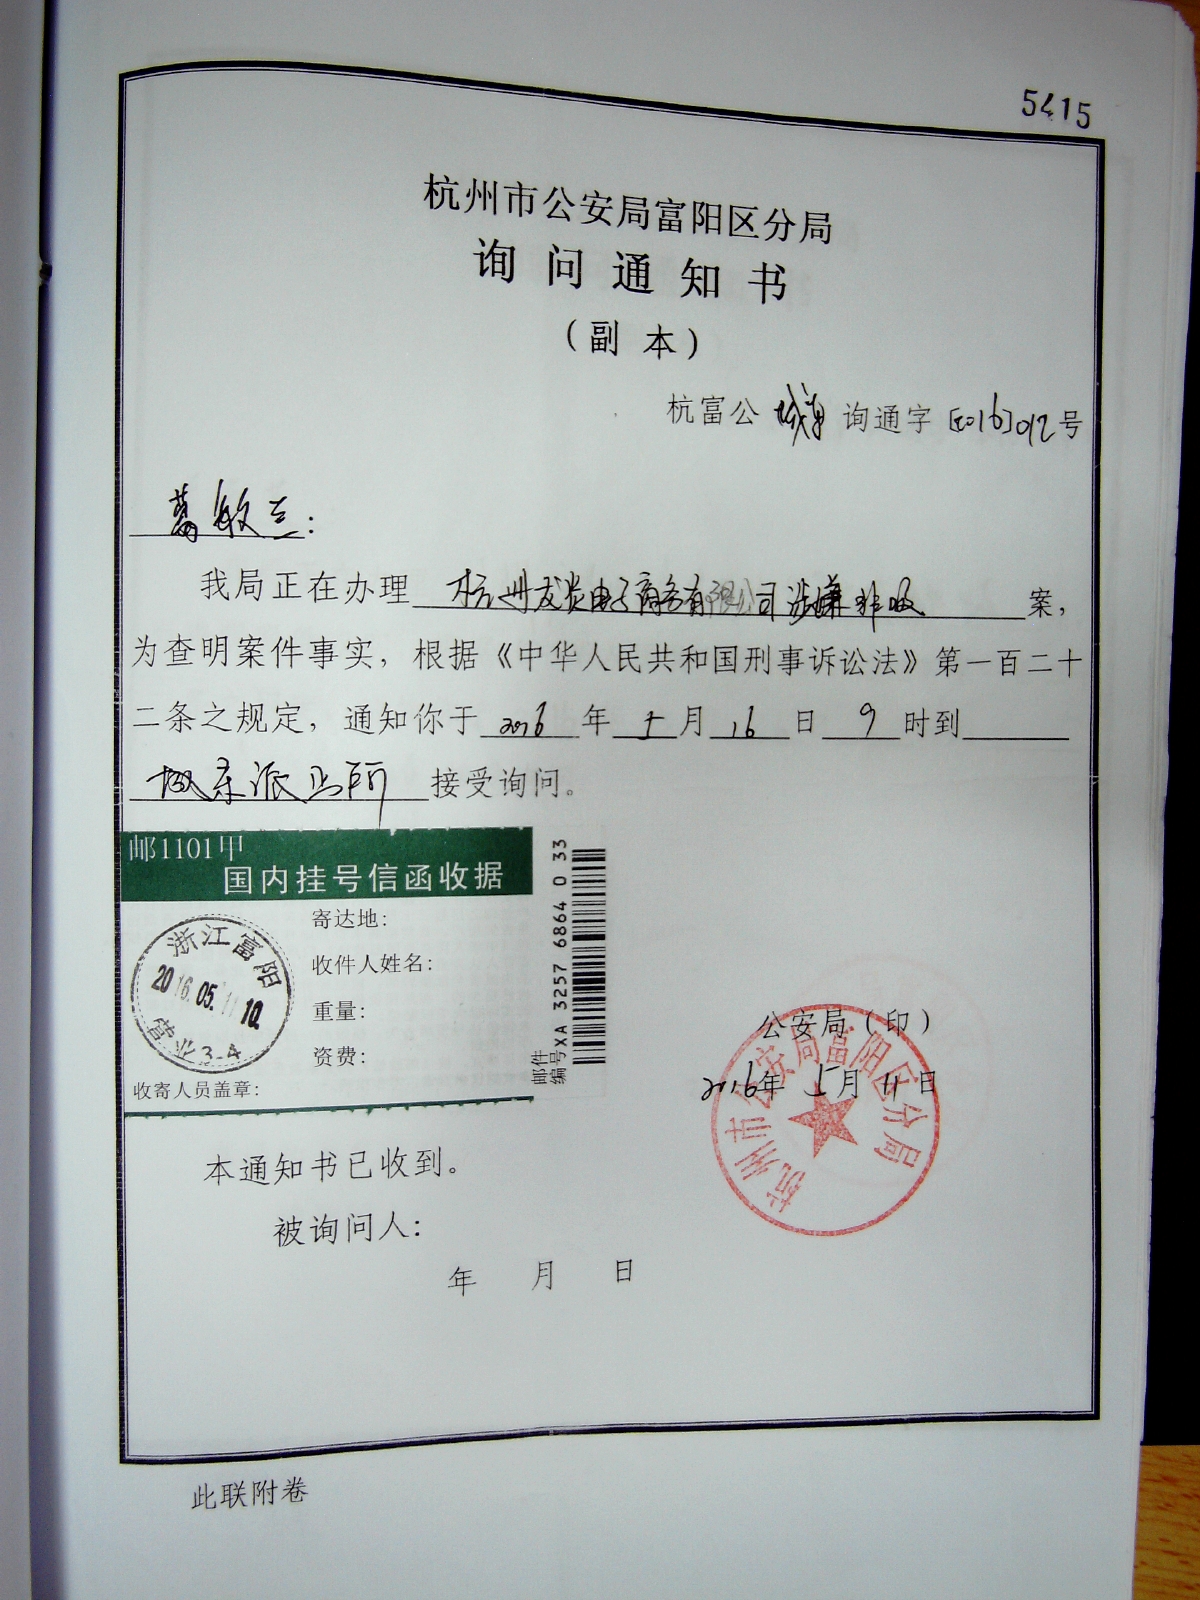 5415
杭州市公安局富阳区分局
询问通知书
（副本）
杭富公 城东 询通字〔2016〕012号
葛敏兰：
我局正在办理 杭州友贵电子商务有限公司涉嫌非吸 案，
为查明案件事实，根据《中华人民共和国刑事诉讼法》第一百二十
二条之规定，通知你于 2016 年 5 月 16 日 9 时到
城东派出所 接受询问。
邮1101甲
国内挂号信函收据
寄达地：
收件人姓名：
重量：
资费：
收寄人员盖章：
浙江富阳
2016.05.11 10
营业3-4
邮件
编号XA 3257 6864 0 33
公安局（印）
2016年 5月 11日
杭州市公安局富阳区分局
本通知书已收到。
被询问人：
年 月 日
此联附卷